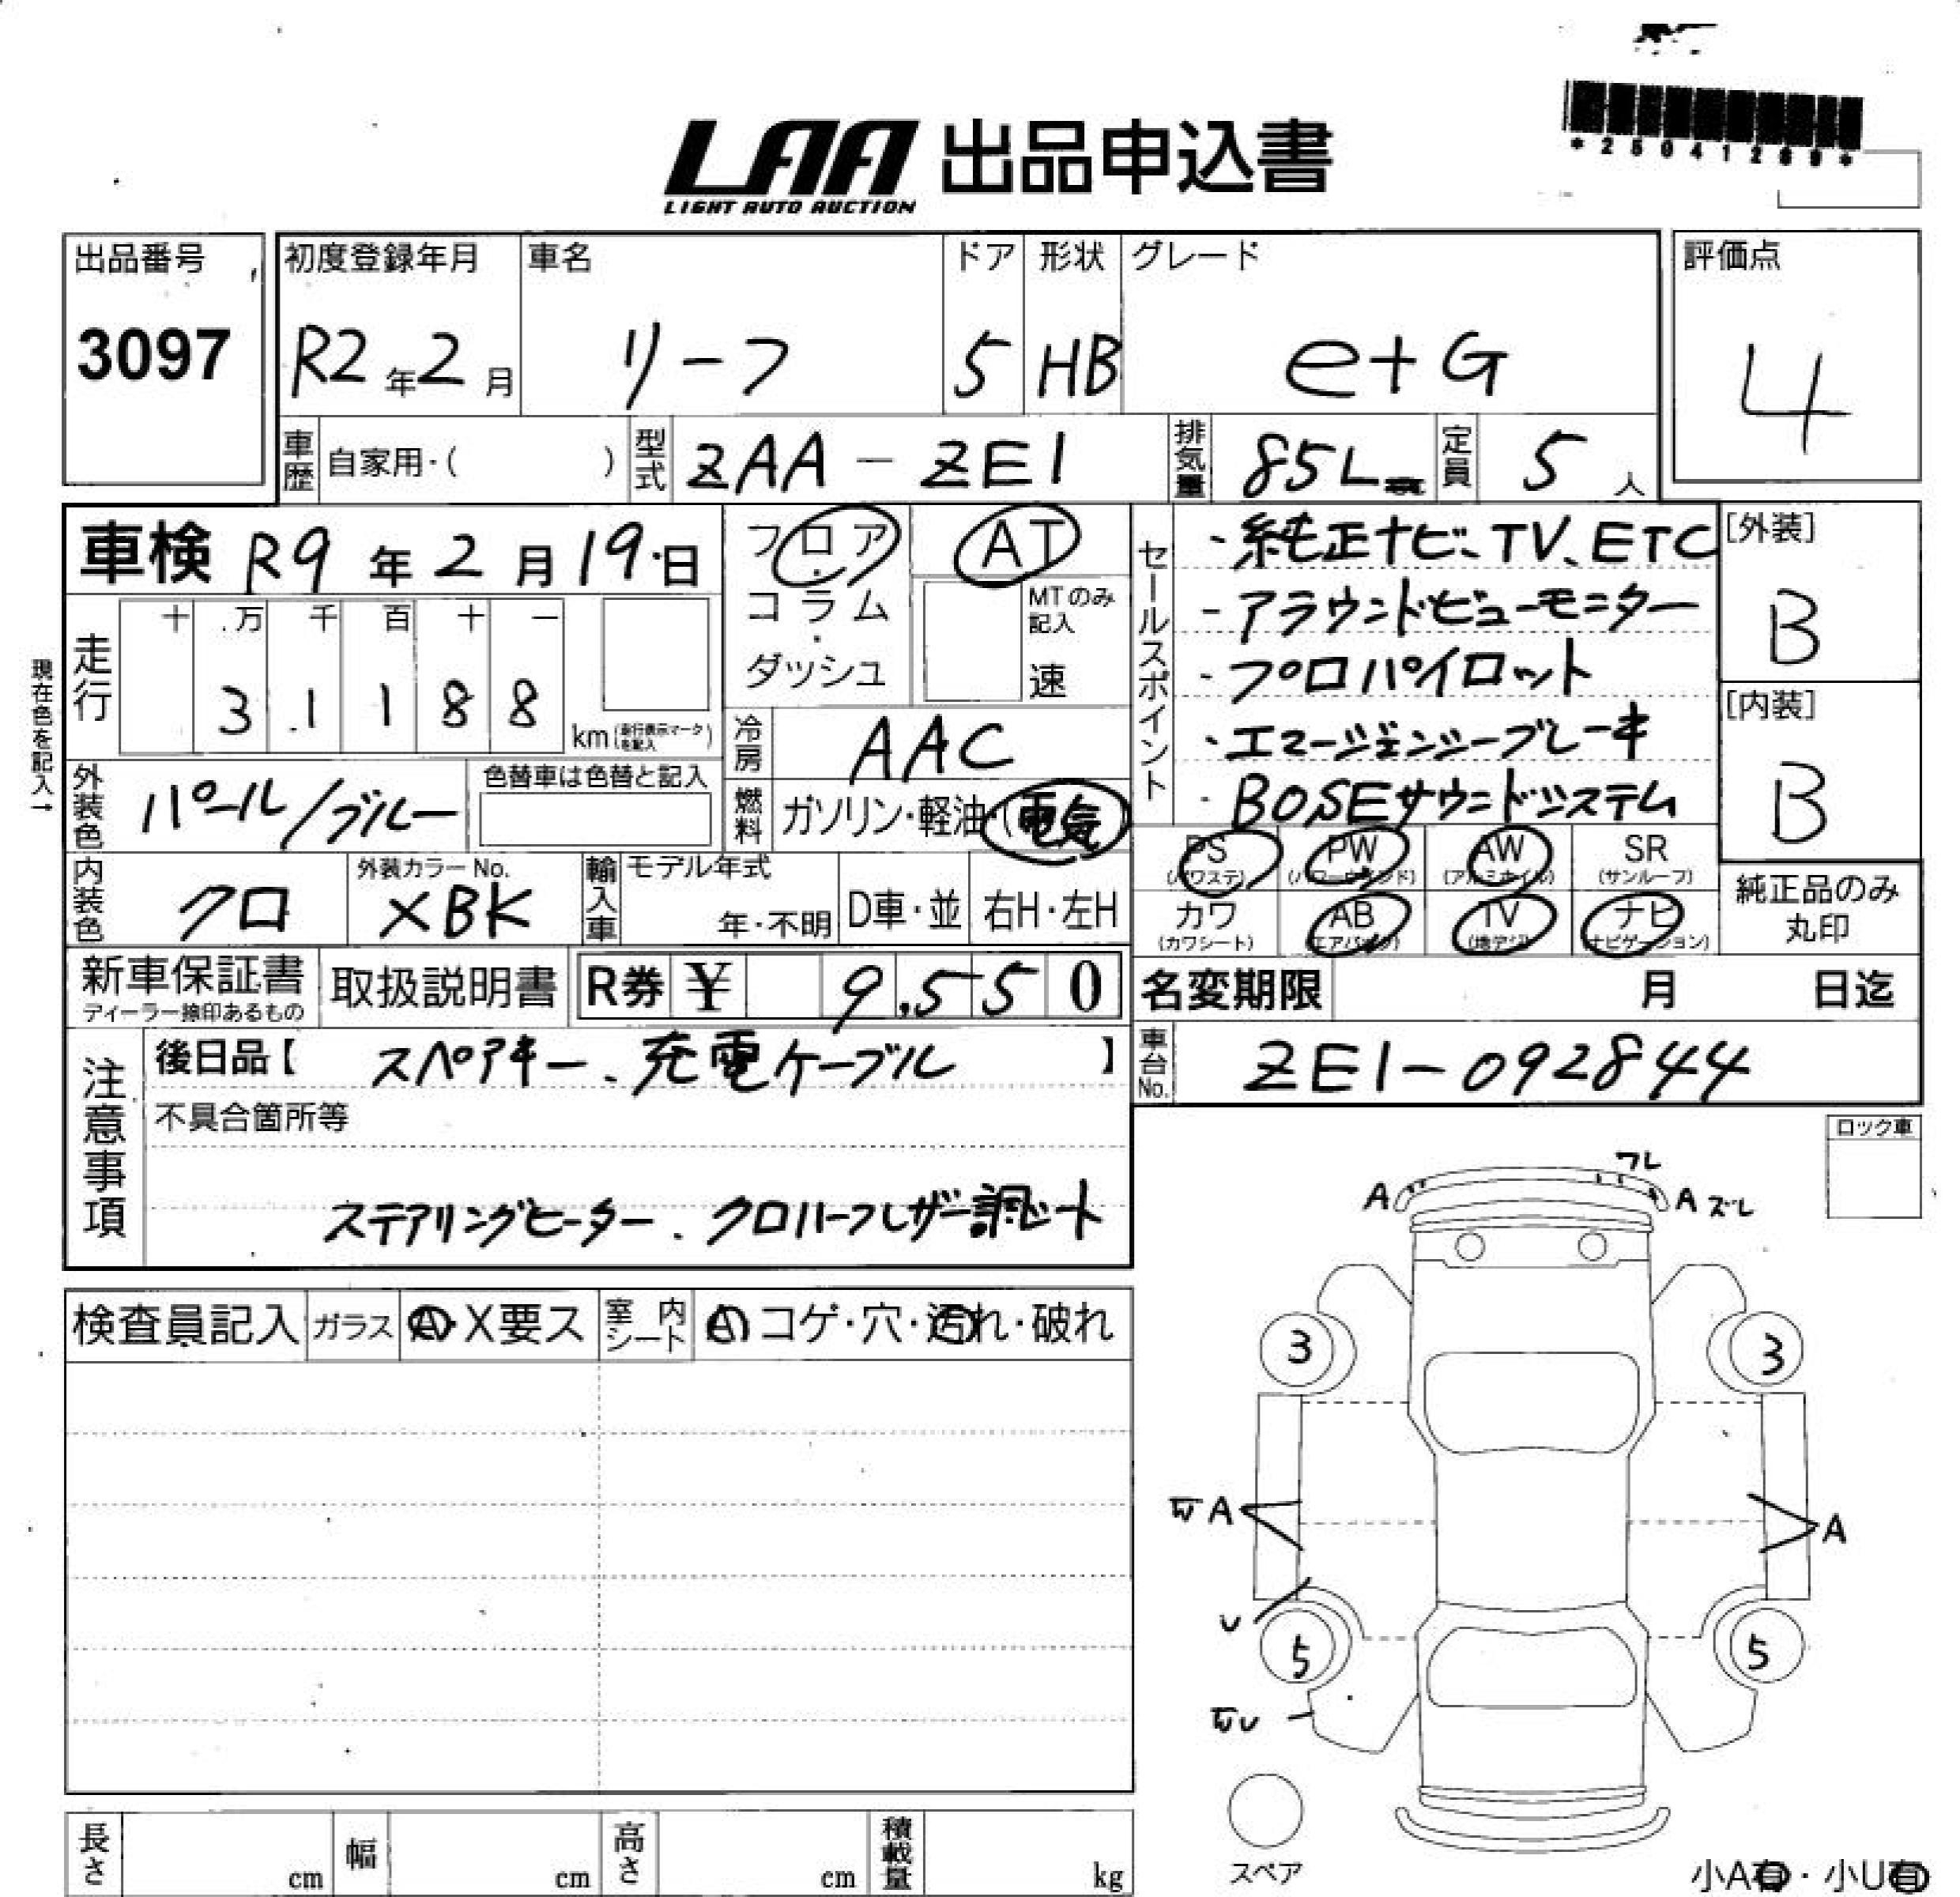 LAA 出品申込書
LIGHT AUTO AUCTION
出品番号
3097
初度登録年月
R2年2月
車名
リーフ
ドア
5
形状
HB
グレード
e+G
評価点
4
車歴 自家用・( )
型式 ZAA-ZE1
排気量 85L
定員 5人
車検 R9年2月19日
フロア・コラム・ダッシュ
AT
MTのみ記入
速
現在色を記入→
走行
十 万 千 百 十 一
3 1 1 8 8
km(走行表示マークを記入)
冷房 AAC
燃料 ガソリン・軽油・(電気)
外装色 パール/ブルー
色替車は色替と記入
内装色 クロ
外装カラーNo.
XBK
輸入車
モデル年式
年・不明
D車・並
右H・左H
セールスポイント
・純正ナビ、TV、ETC
・アラウンドビューモニター
・プロパイロット
・エマージェンシーブレーキ
・BOSEサウンドシステム
[外装]
B
[内装]
B
PS (パワステ)
PW (パワーウインド)
AW (アルミホイル)
SR (サンルーフ)
カワ (カワシート)
AB (エアバック)
TV (地デジ)
ナビ (ナビゲーション)
純正品のみ丸印
新車保証書
ディーラー捺印あるもの
取扱説明書
R券 ¥ 9,550
名変期限 月 日迄
車台No. ZE1-092844
注意事項
後日品【 スペアキー、充電ケーブル 】
不具合箇所等
ステアリングヒーター、クロハーフレザー調シート
ロック車
ワレ
A
A ズレ
検査員記入
ガラス
A・X要ス
室内シート
A コゲ・穴・汚れ・破れ
3
3
A
A
U
5
5
U
スペア
長さ cm
幅 cm
高さ cm
積載量 kg
小A有・小U有